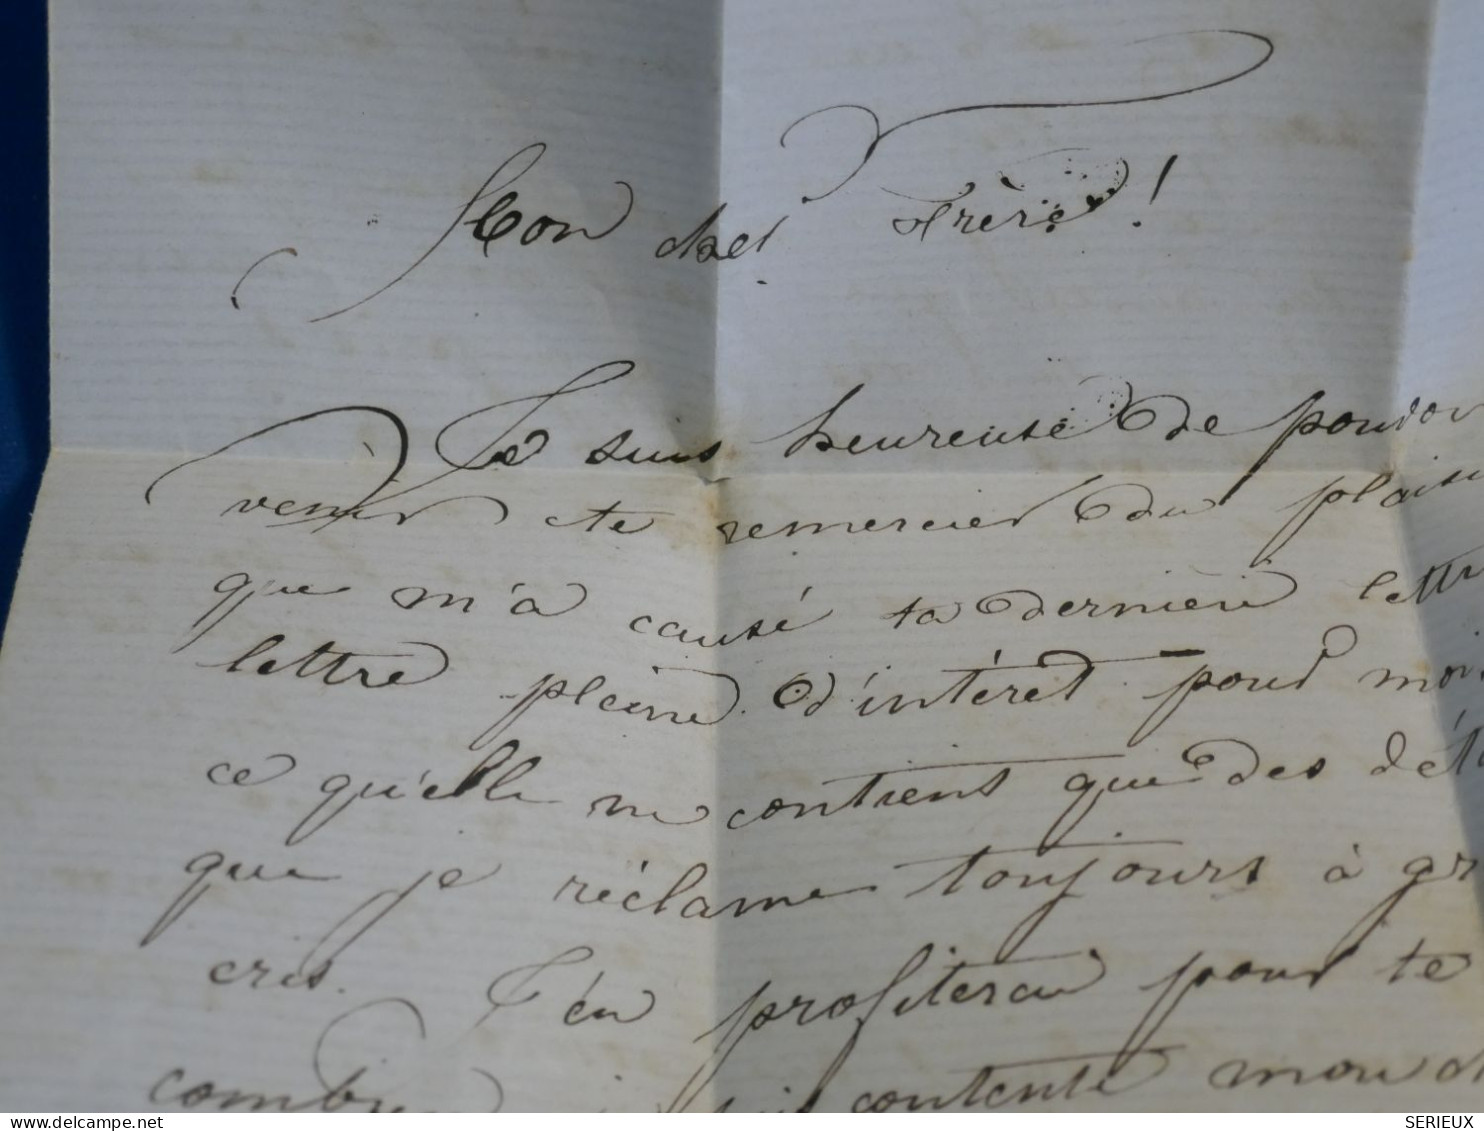 Mon cher Frère!
Je suis heureuse de pouvoi
venir te remercier du plaisi
que m'a causé ta dernière lettr
lettre pleine d'intérêt pour moi
ce qu'elle ne contient que des déta
que je réclame toujours à gr
cris. J'en profiterai pour te
combien je suis contente mon ch
delcampe.net
SERIEUX